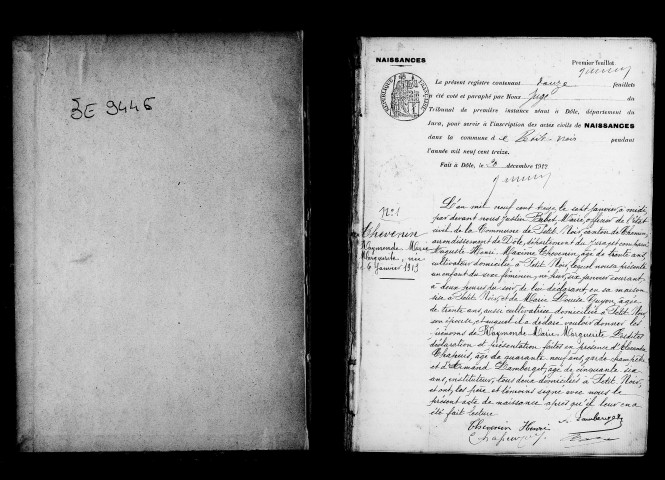 3E 9446
NAISSANCES
Premier feuillet
RÉPUBLIQUE FRANÇAISE
Le présent registre contenant douze feuillets
a été coté et paraphé par Nous Juge du
Tribunal de première instance séant à Dôle, département du
Jura, pour servir à l'inscription des actes civils de NAISSANCES
dans la commune de Petit-Noir pendant
l'année mil neuf cent treize.
Fait à Dôle, le 30 décembre 1912
N° 1
Thevenin
Raymonde Marie
Marguerite, née
le 6 Janvier 1913
L'an mil neuf cent treize, le sept Janvier, à midi,
par devant nous Justin Maire, officier de l'état
civil de la Commune de Petit Noir, canton de Chemin,
arrondissement de Dôle, département du Jura, est comparu
Auguste Henri Maxime Thevenin, âgé de trente ans,
cultivateur domicilié à Petit Noir, lequel nous a présenté
un enfant du sexe féminin, né hier, six janvier courant,
à deux heures du soir, de lui déclarant, en sa maison
sise à Petit Noir, et de Marie Louise Guyon, âgée
de trente ans, aussi cultivatrice domiciliée à Petit Noir,
son épouse, et auquel il a déclaré vouloir donner les
prénoms de Raymonde Marie Marguerite. Lesdites
déclaration et présentation faites en présence d'Alexandre
Chapuis, âgé de quarante neuf ans, garde champêtre
et d'Armand Lamberget, âgé de cinquante six
ans, instituteur, tous deux domiciliés à Petit Noir,
et ont, les père et témoins signé avec nous le
présent acte de naissance après qu'il leur en a
été fait lecture
Thevenin Henri A. Lamberget
Chapuis